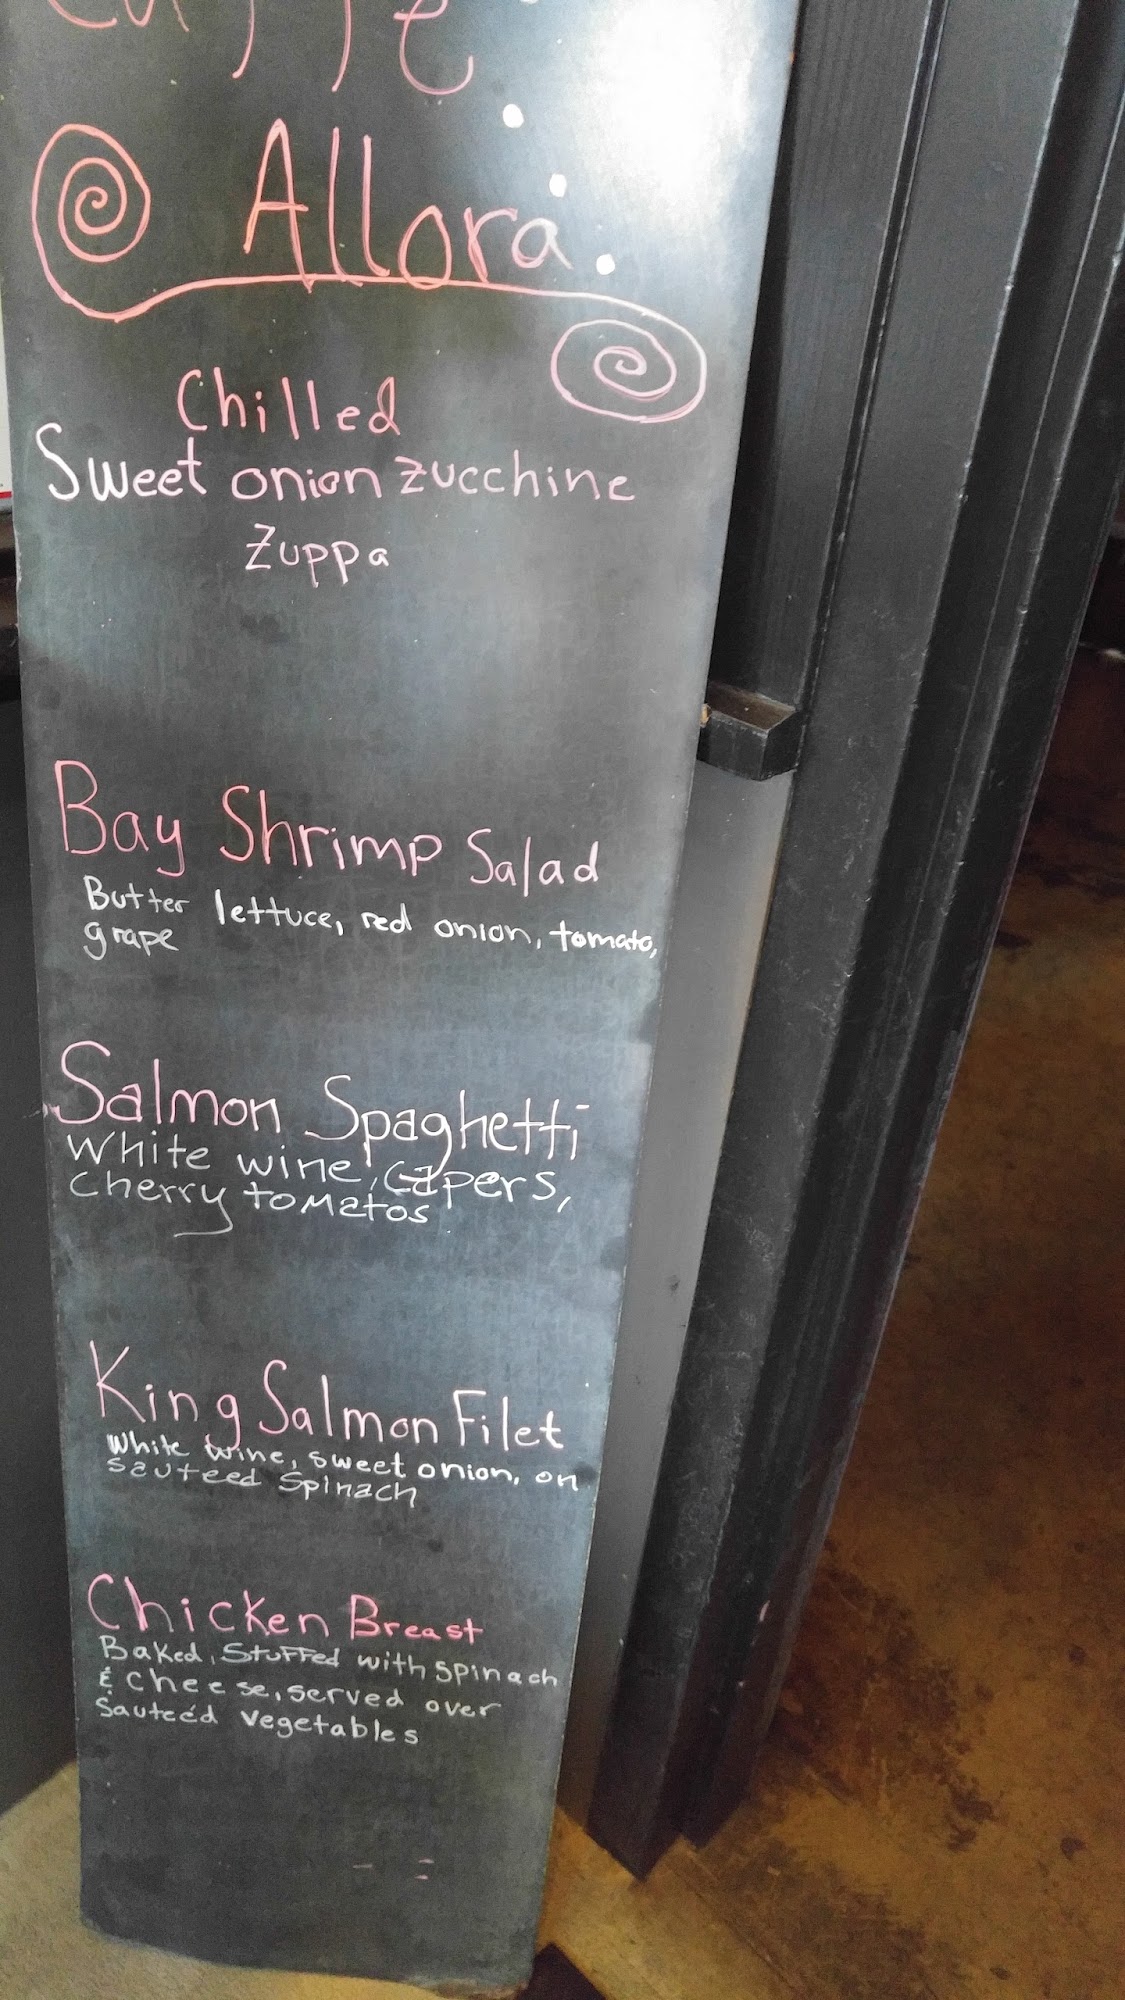 Allora
Chilled
Sweet onion zucchine
Zuppa
Bay Shrimp Salad
Butter lettuce, red onion, tomato,
grape
Salmon Spaghetti
White wine, capers,
cherry tomatos
King Salmon Filet
White wine, sweet onion, on
sauteed Spinach
Chicken Breast
Baked, Stuffed with spinach
& cheese, served over
Sauteéd vegetables